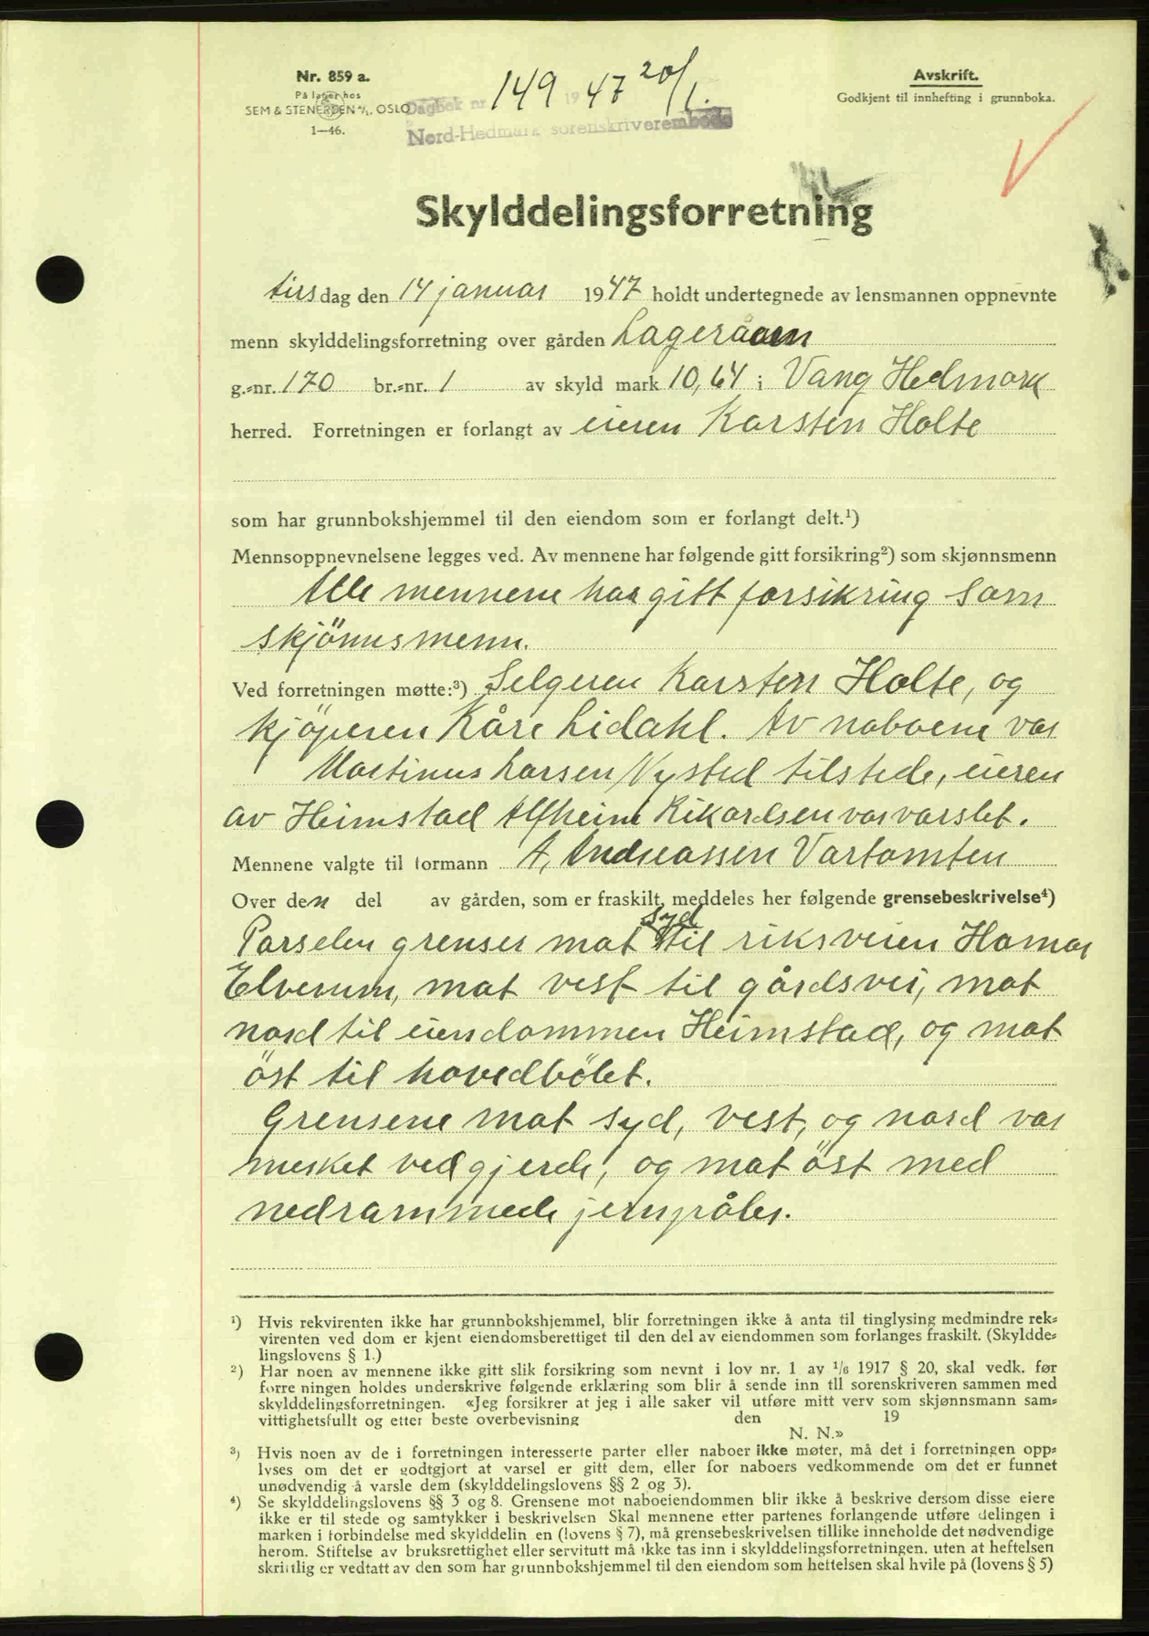 Nr. 859 a.
På lager hos
SEM & STENERSEN A/S. OSLO
1—46.
Dagbok nr. 149 1947 20/1.
Nord-Hedmark sorenskriverembede
Avskrift.
Godkjent til innhefting i grunnboka.
Skylddelingsforretning
tirsdag den 14 januar 1947 holdt undertegnede av lensmannen oppnevnte
menn skylddelingsforretning over gården
g.=nr. 170 br.=nr. 1 av skyld mark 10,64 i Vang Hedmark
herred. Forretningen er forlangt av eieren Karsten Holte
som har grunnbokshjemmel til den eiendom som er forlangt delt.¹)
Mennsoppnevnelsene legges ved. Av mennene har følgende gitt forsikring²) som skjønnsmenn
Alle mennene har gitt forsikring som
skjönnsmenn.
Ved forretningen møtte:³) Selgeren Karsten Holte, og
kjöperen Kåre Lidahl. Av naboene var
Martinus Larsen Nysted tilstede, eieren
av Heimstad Alfheim Rikardsen var varslet.
Mennene valgte til formann A. Andreassen Vartomten
Over den del av gården, som er fraskilt, meddeles her følgende grensebeskrivelse⁴)
Parselen grenser mot syd til riksveien Hamar
Elverum, mot vest til gårdsvei, mot
nord til eiendommen Heimstad, og mot
öst til hovedbölet.
Grensene mot syd, vest, og nord var
merket ved gjerde, og mot öst med
nedrammede jernpåler.
¹) Hvis rekvirenten ikke har grunnbokshjemmel, blir forretningen ikke å anta til tinglysing medmindre rek=
virenten ved dom er kjent eiendomsberettiget til den del av eiendommen som forlanges fraskilt. (Skyldde=
lingslovens § 1.)
²) Har noen av mennene ikke gitt slik forsikring som nevnt i lov nr. 1 av 1/6 1917 § 20, skal vedk. før
forre ningen holdes underskrive følgende erklæring som blir å sende inn til sorenskriveren sammen med
skylddelingsforretningen. «Jeg forsikrer at jeg i alle saker vil utføre mitt verv som skjønnsmann sam=
vittighetsfullt og etter beste overbevisning den 19
N. N.»
³) Hvis noen av de i forretningen interesserte parter eller naboer ikke møter, må det i forretningen opp=
lyses om det er godtgjort at varsel er gitt dem, eller for naboers vedkommende om det er funnet
unødvendig å varsle dem (skylddelingslovens §§ 2 og 3).
⁴) Se skylddelingslovens §§ 3 og 8. Grensene mot naboeiendommen blir ikke å beskrive dersom disse eiere
ikke er til stede og samtykker i beskrivelsen Skal mennene etter partenes forlangende utføre delingen i
marken i forbindelse med skylddelin en (lovens § 7), må grensebeskrivelsen tillike inneholde det nødvendige
herom. Stiftelse av bruksrettighet eller servitutt må ikke tas inn i skylddelingsforretningen. uten at heftelsen
skriftlig er vedtatt av den som har grunnbokshjemmel til den eiendom som heftelsen skal hvile på (lovens § 5)